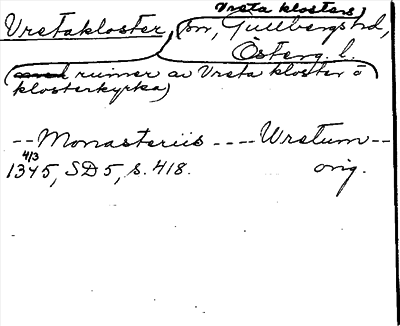 Vreta klosters
Vretakloster, sn, Gullbergs hd,
Österg. l.
(med ruiner av Vreta kloster o
klosterkyrka)
--Monasteriis ---- Wretum--
4/3
1345, SD 5, s. 418. orig.